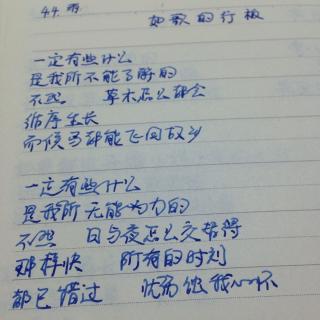 44. 雨
如歌的行板
一定有些什么
是我所不能了解的
不然 草木怎么都会
循序生长
而候鸟都能飞回故乡
一定有些什么
是我所无能为力的
不然 日与夜怎么交替得
那样快 所有的时刻
都已错过 忧伤蚀我心怀